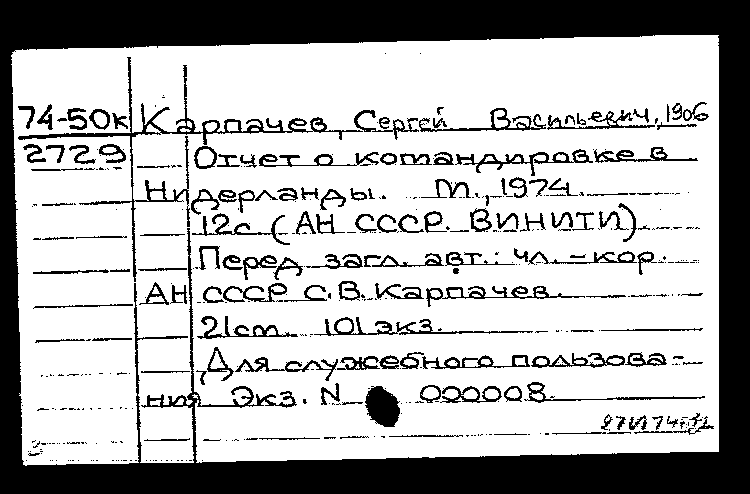 74-50к Карпачев, Сергей Васильевич, 1906
2729 Отчет о командировке в
Нидерланды. М., 1974.
12с (АН СССР. ВИНИТИ).
Перед загл. авт.: чл.-кор.
АН СССР С.В. Карпачев.
21cm. 101 экз.
Для служебного пользова-
ния Экз. N 000008
3